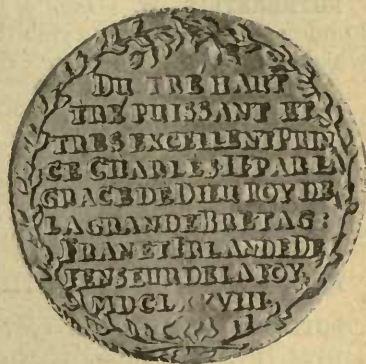 DU TRE HAUT
TRE PUISSANT ET
TRES EXCELLENT PRIN
CE CHARLES II PAR LA
GRACE DE DIEU ROY DE
LA GRANDE BRETAG:
FRAN ET IRLANDE DE
FENSEUR DE LA FOY
MDCLXXVIII